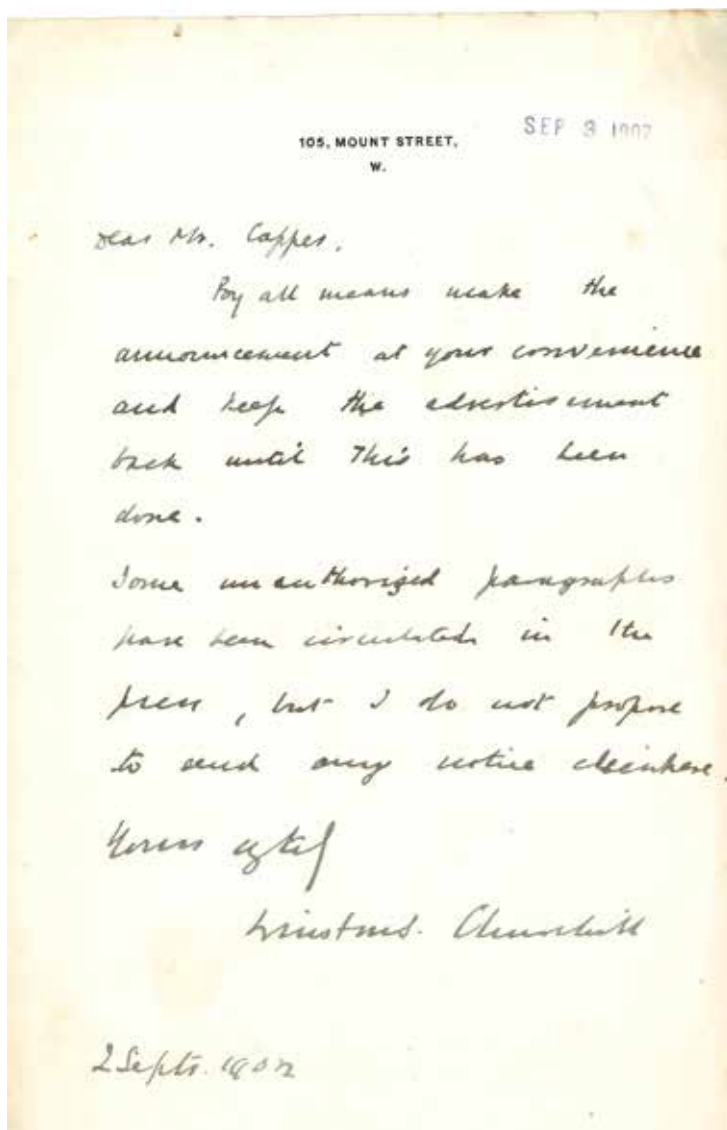 105, MOUNT STREET,
W.
SEP 3 1902
Dear Mr. Capper.
By all means make the
announcement at your convenience
and keep the advertisement
back until this has been
done.
Some unauthorized paragraphs
have been circulated in the
press, but I do not propose
to send any notice elsewhere.
Yours
Winston S. Churchill
2 Septr. 1902